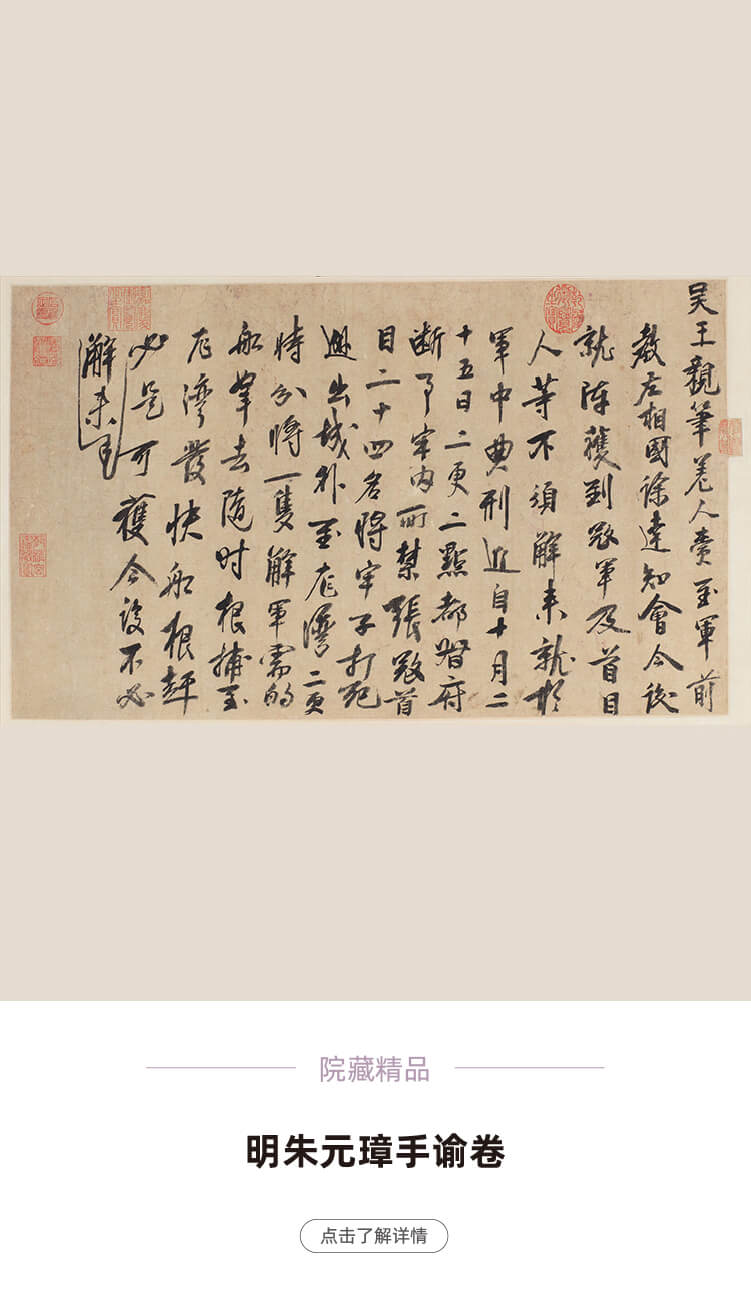 吴王親筆差人賫至軍前
教左相國徐達知會今後
就陣獲到寇軍及首目
人等不須解來就於
軍中典刑近自十月二
十五日二更二點都督府
断了牢内所禁張寇首
目二十四名将牢子打死
逃出城外至龙灣二更
時分将一隻解軍需的
船奪去随时根捕至
龙灣發快船根赶
必是可獲今後不必
解来也
院藏精品
明朱元璋手谕卷
点击了解详情